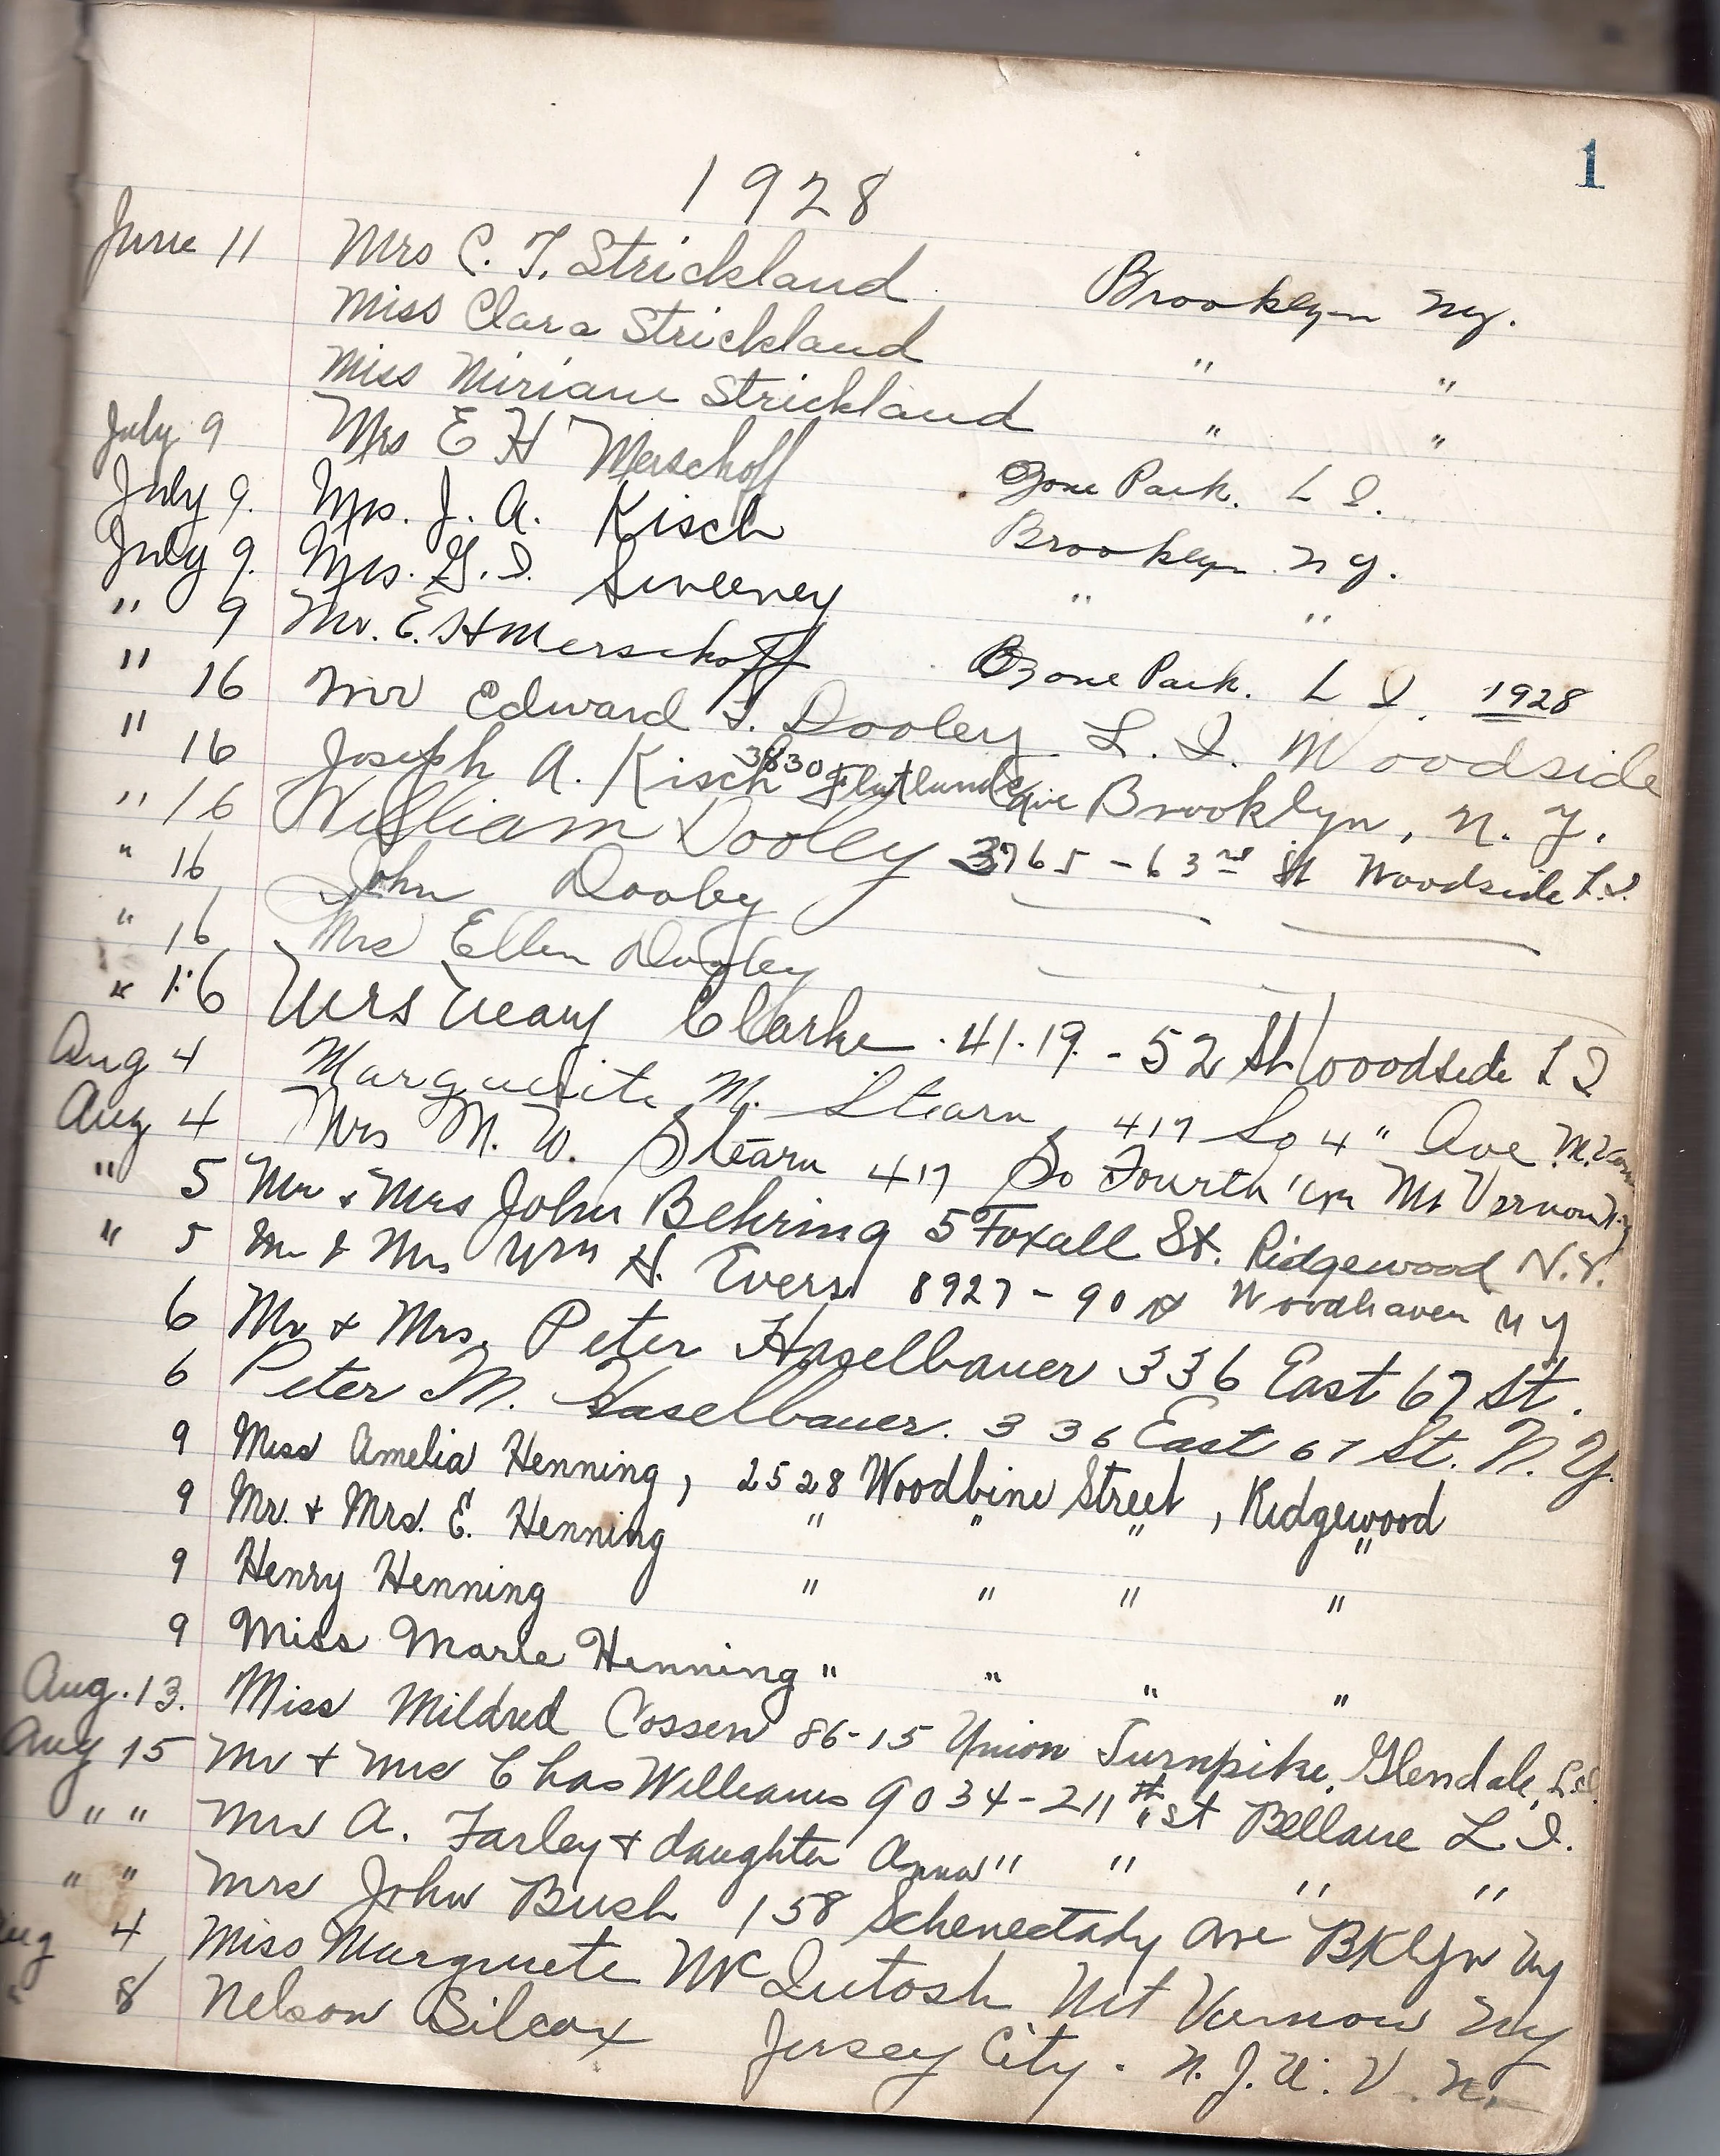 1
1928
June 11 Mrs C. T. Strickland Brooklyn Ny.
Miss Clara Strickland " "
Miss Miriam Strickland " "
July 9 Mrs E H Merschoff Ozone Park. L I.
July 9. Mrs. J. A. Kisch Brooklyn N Y.
July 9. Mrs. G. I. Sweeney " "
" 9 Mr. E. H Merschoff Ozone Park. L I. 1928
" 16 Mr Edward F. Dooley L. I. Woodside
" 16 Joseph A. Kisch 3830 Flatlands Ave Brooklyn, N. Y.
" 16 William Dooley 3765 - 63rd St Woodside L.I.
" 16 John Dooley
" 16 Mrs Ellen Dooley
" 16 Mrs Mary Clarke. 41.19. - 52 St Wooodside L I
Aug 4 Marguerite M. Stearn, 417 So 4" Ave. M. Vern
Aug 4 Mrs M. W. Stearn 417 So Fourth Mt Vernon N.Y
" 5 Mr & Mrs John Behring 5 Foxall St. Ridgewood N.Y.
" 5 Mr & Mrs Wm H. Evers 8927 - 90 St Woodhaven N Y
6 Mr & Mrs. Peter Haselbauer 336 East 67 St.
6 Peter M. Haselbauer. 336 East 67 St. N. Y.
9 Miss Amelia Henning, 2528 Woodbine Street, Ridgewood
9 Mr. & Mrs. E. Henning " " " "
9 Henry Henning " " " "
9 Miss Marie Henning " " " "
Aug. 13. Miss Mildred Cossen 86-15 Union Turnpike, Glendale, L.I.
Aug 15 Mr & Mrs Chas Williams 9034 - 211th St Bellaire L. I.
" " Mrs A. Farley & daughter Anna " " " "
" " Mrs John Bush 158 Schenectady Ave BKlyn Ny
Aug 4 Miss Marguerite McIntosh Mt Vernon Ny
" 8 Nelson Silcox Jersey City. N. J. U. V. N.